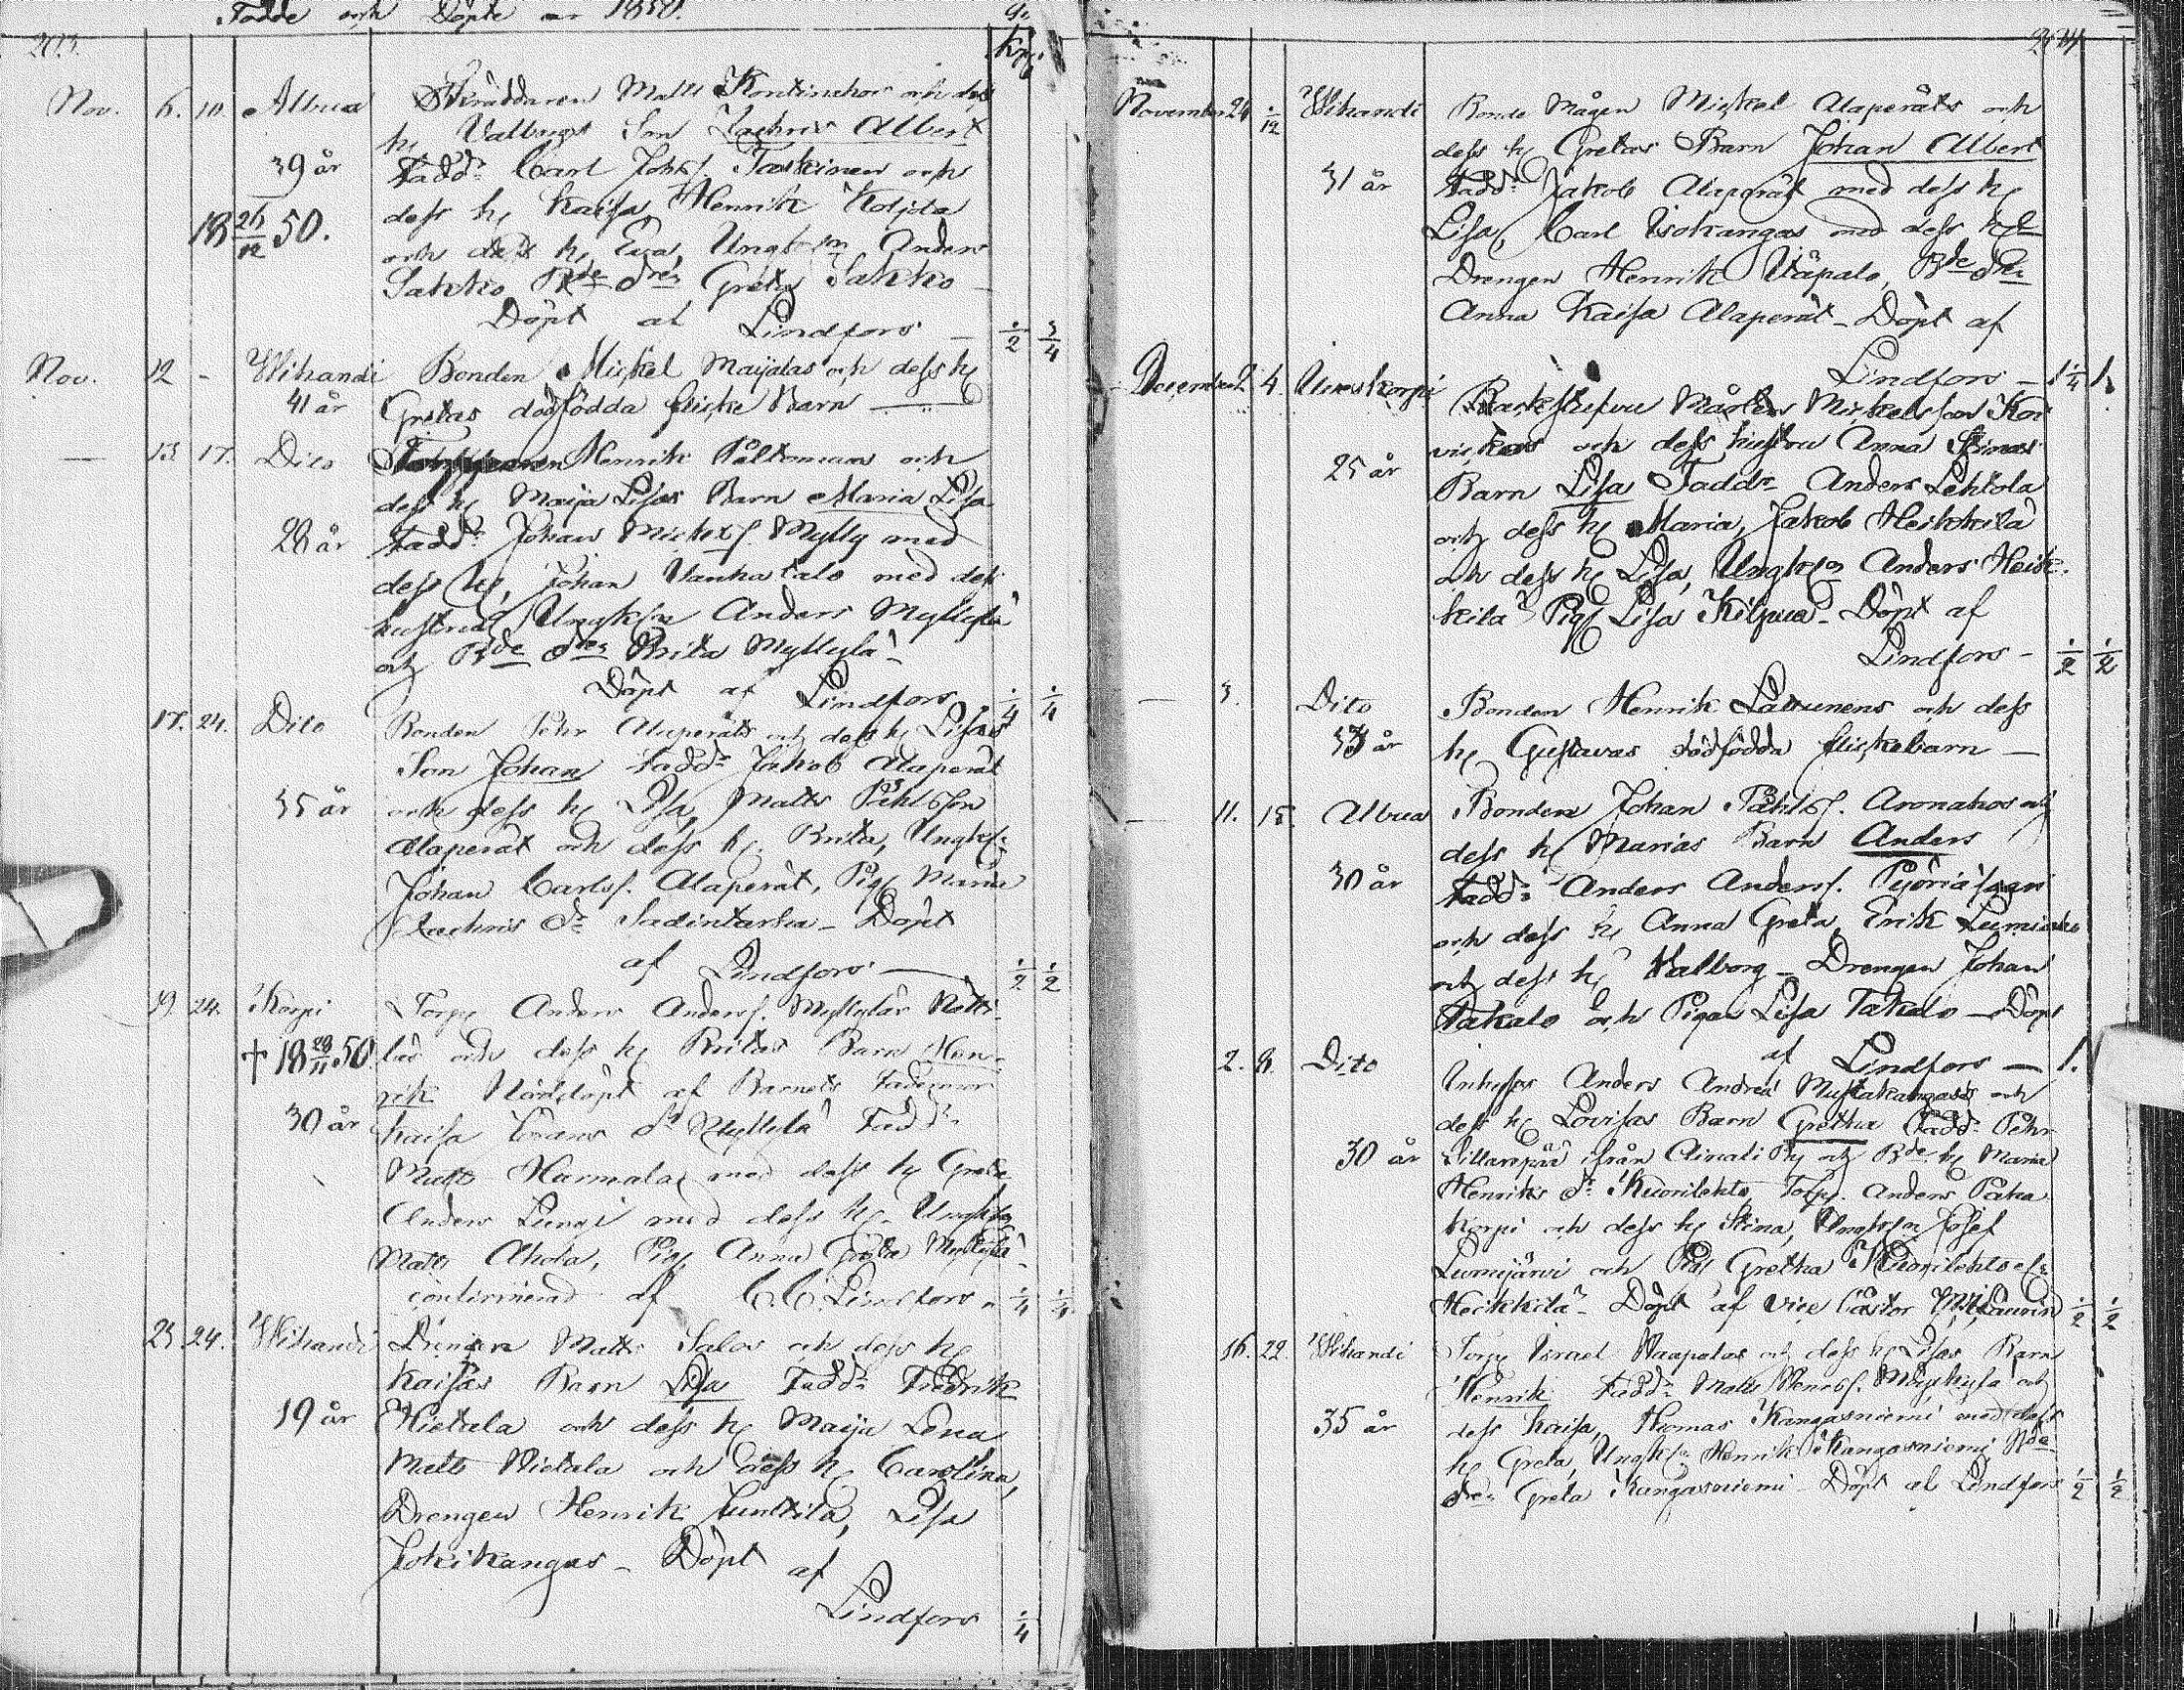 Födde och Döpte år 1850.
203.
Nov. 6. 10. Albua Skräddaren Matts Kontinahos och dess
h Valborgs Son Zachris Albert
39 år Fadd: Carl Johs. Taskinen och
dess h Kaisa, Henrik Koljola
18 26/12 50. och dess h Eva, Ungk Anders
Sakko Bde dr Greta Sakko
Döpt af Lindfors 1/2 3/4
Nov. 12 - Wihandi Bonden Mickel Maijalas och dess h
41 år Gretas dödfödda flicke Barn
— 13. 17. Dito Henrik Påltomaas och
dess h Maija Lisas Barn Maria Lisa
28 år Fadd: Johan Mickels. Mylly med
dess h, Johan Vanhatalo med dess
hustru, Ungk Anders Myllylä
och Bde dr Brita Myllylä
Döpt af Lindfors 1/4 1/4
17. 24. Dito Bonden Pehr Alaperäts och dess h Lisas
Son Johan Fadd: Jakob Alaperät
35 år och dess h Lisa, Matts Påhlsson
Alaperät och dess h. Brita, Ungk:
Johan Carls. Alaperät, Pig Maria
Zachris dr - Döpt
af Lindfors — 1/2 1/2
19. 24. Korpi Torp Anders Anders. Myllylär
+ 18 29/11 50. och dess h Britas Barn Hen-
rik Nöddöpt af Barnets Fadermor
30 år Kaisa dr Myllylä Fadd:
Matts Harmala med dess h Greta
Anders Lungi med dess h. Ungk
Matts Ahola, Pig Anna Greta Myllylä
confirmerad af C.C. Lindfors 1/4 1/4
23 24. Wihandi Matts Salos och dess h
Kaisas Barn Lisa Fadd: Fredrik
19 år Hietala och dess h Maija Lena
Matts Hietala och dess h Carolina,
Drengen Henrik Junttila, Lisa
Jokikangas - Döpt af
Lindfors 1/4
November 24 1/12 Wihandi Bonde Mågen Mickel Alaperäts och
dess h Gretas Barn Johan Albert
31 år Fadd: Jakob Alaperät med dess h
Lisa, Carl Isokangas med dess h
Drengen Henrik Wäpalo, Bde dr
Anna Kaisa Alaperät - Döpt af
Lindfors — 1/4 1.
December 2 4. Mårten Mickelsson Kor
och dess hustru Anna Stinas
25 år Barn Lisa Fadd: Anders Lehtola
och dess h Maria, Jakob Heikkilä
och dess h Lisa, Ungk Anders Heik-
kilä Pig Lisa Kilpua - Döpt af
Lindfors - 1/2 1/2
— 3. Dito Bonden Henrik Laurunens och dess
h Gustavas dödfödda flickebarn —
— 11. 15. Albua Bonden Johan Påhls. Aronahos och
dess h Marias Barn Anders
30 år Fadd: Anders Anders.
och dess h Anna Greta, Erik
och dess h Valborg - Drengen Johan
Takalo och Pigan Lisa Takalo - Döpt
af Lindfors — 1.
2. 8. Dito Inhyses Anders Andreä Mustakangas's och
dess h Lovisas Barn Gretha Fadd: Pehr
30 år Sillanpää ifrån och Bde. h Maria
Henriks dr Kuonilehto, Torp. Anders Paka
korpi och dess h Stina, Ungk Josef
Lumijärvi och Pig Gretha Kuonilehto el:
Heikkilä - Döpt af vice Pastor Laurin 1/2 1/2
16. 22. Wihandi Torp Israel Waapalos och dess h Lisas Barn
Henrik Fadd: Matts Henrs. och
35 år dess Kaisa, Thomas Kangasniemi med dess
h Greta, Ungk: Henrik Kangasniemi Bde
dr Greta Kangasniemi - Döpt af Lindfors 1/2 1/2